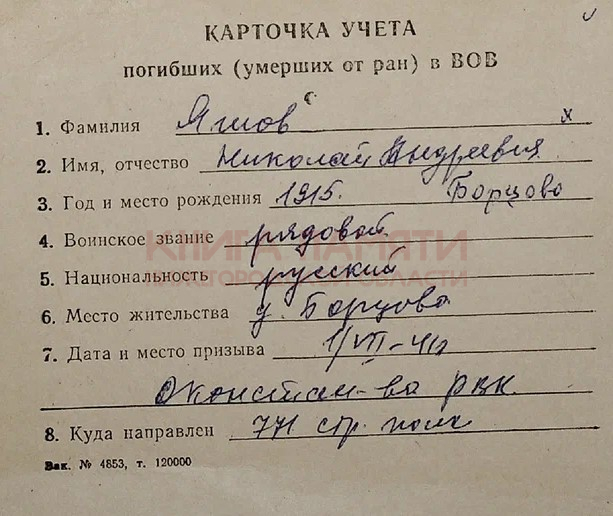 КАРТОЧКА УЧЕТА
погибших (умерших от ран) в ВОВ
1. Фамилия Яшов х
2. Имя, отчество Николай Андреевич
3. Год и место рождения 1915. Борцово
4. Воинское звание рядовой
КНИГА ПАМЯТИ
НИЖЕГОРОДСКОЙ ОБЛАСТИ
5. Национальность русский
6. Место жительства д. Борцово
7. Дата и место призыва 1/VII-41г
РВК.
8. Куда направлен 771 стр. полк
Зак. № 4853, т. 120000